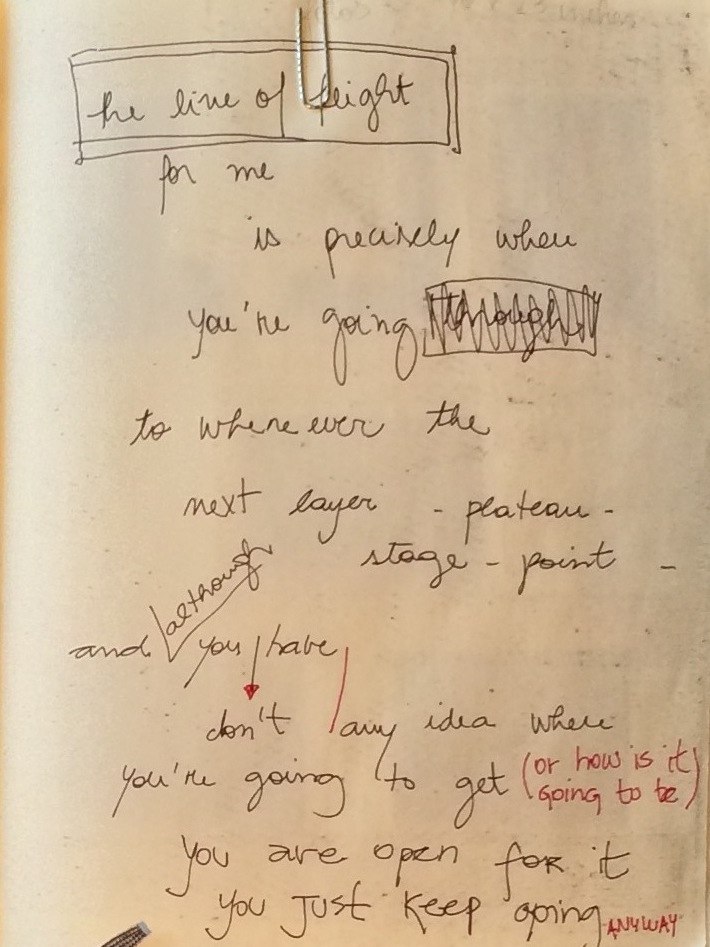 the line of flight
for me
is precisely when
you're going through
to whenever the
next layer - plateau -
stage - point -
although
and you have
don't any idea where
you're going to get (or how is it
going to be)
you are open for it
you just keep going ANYWAY